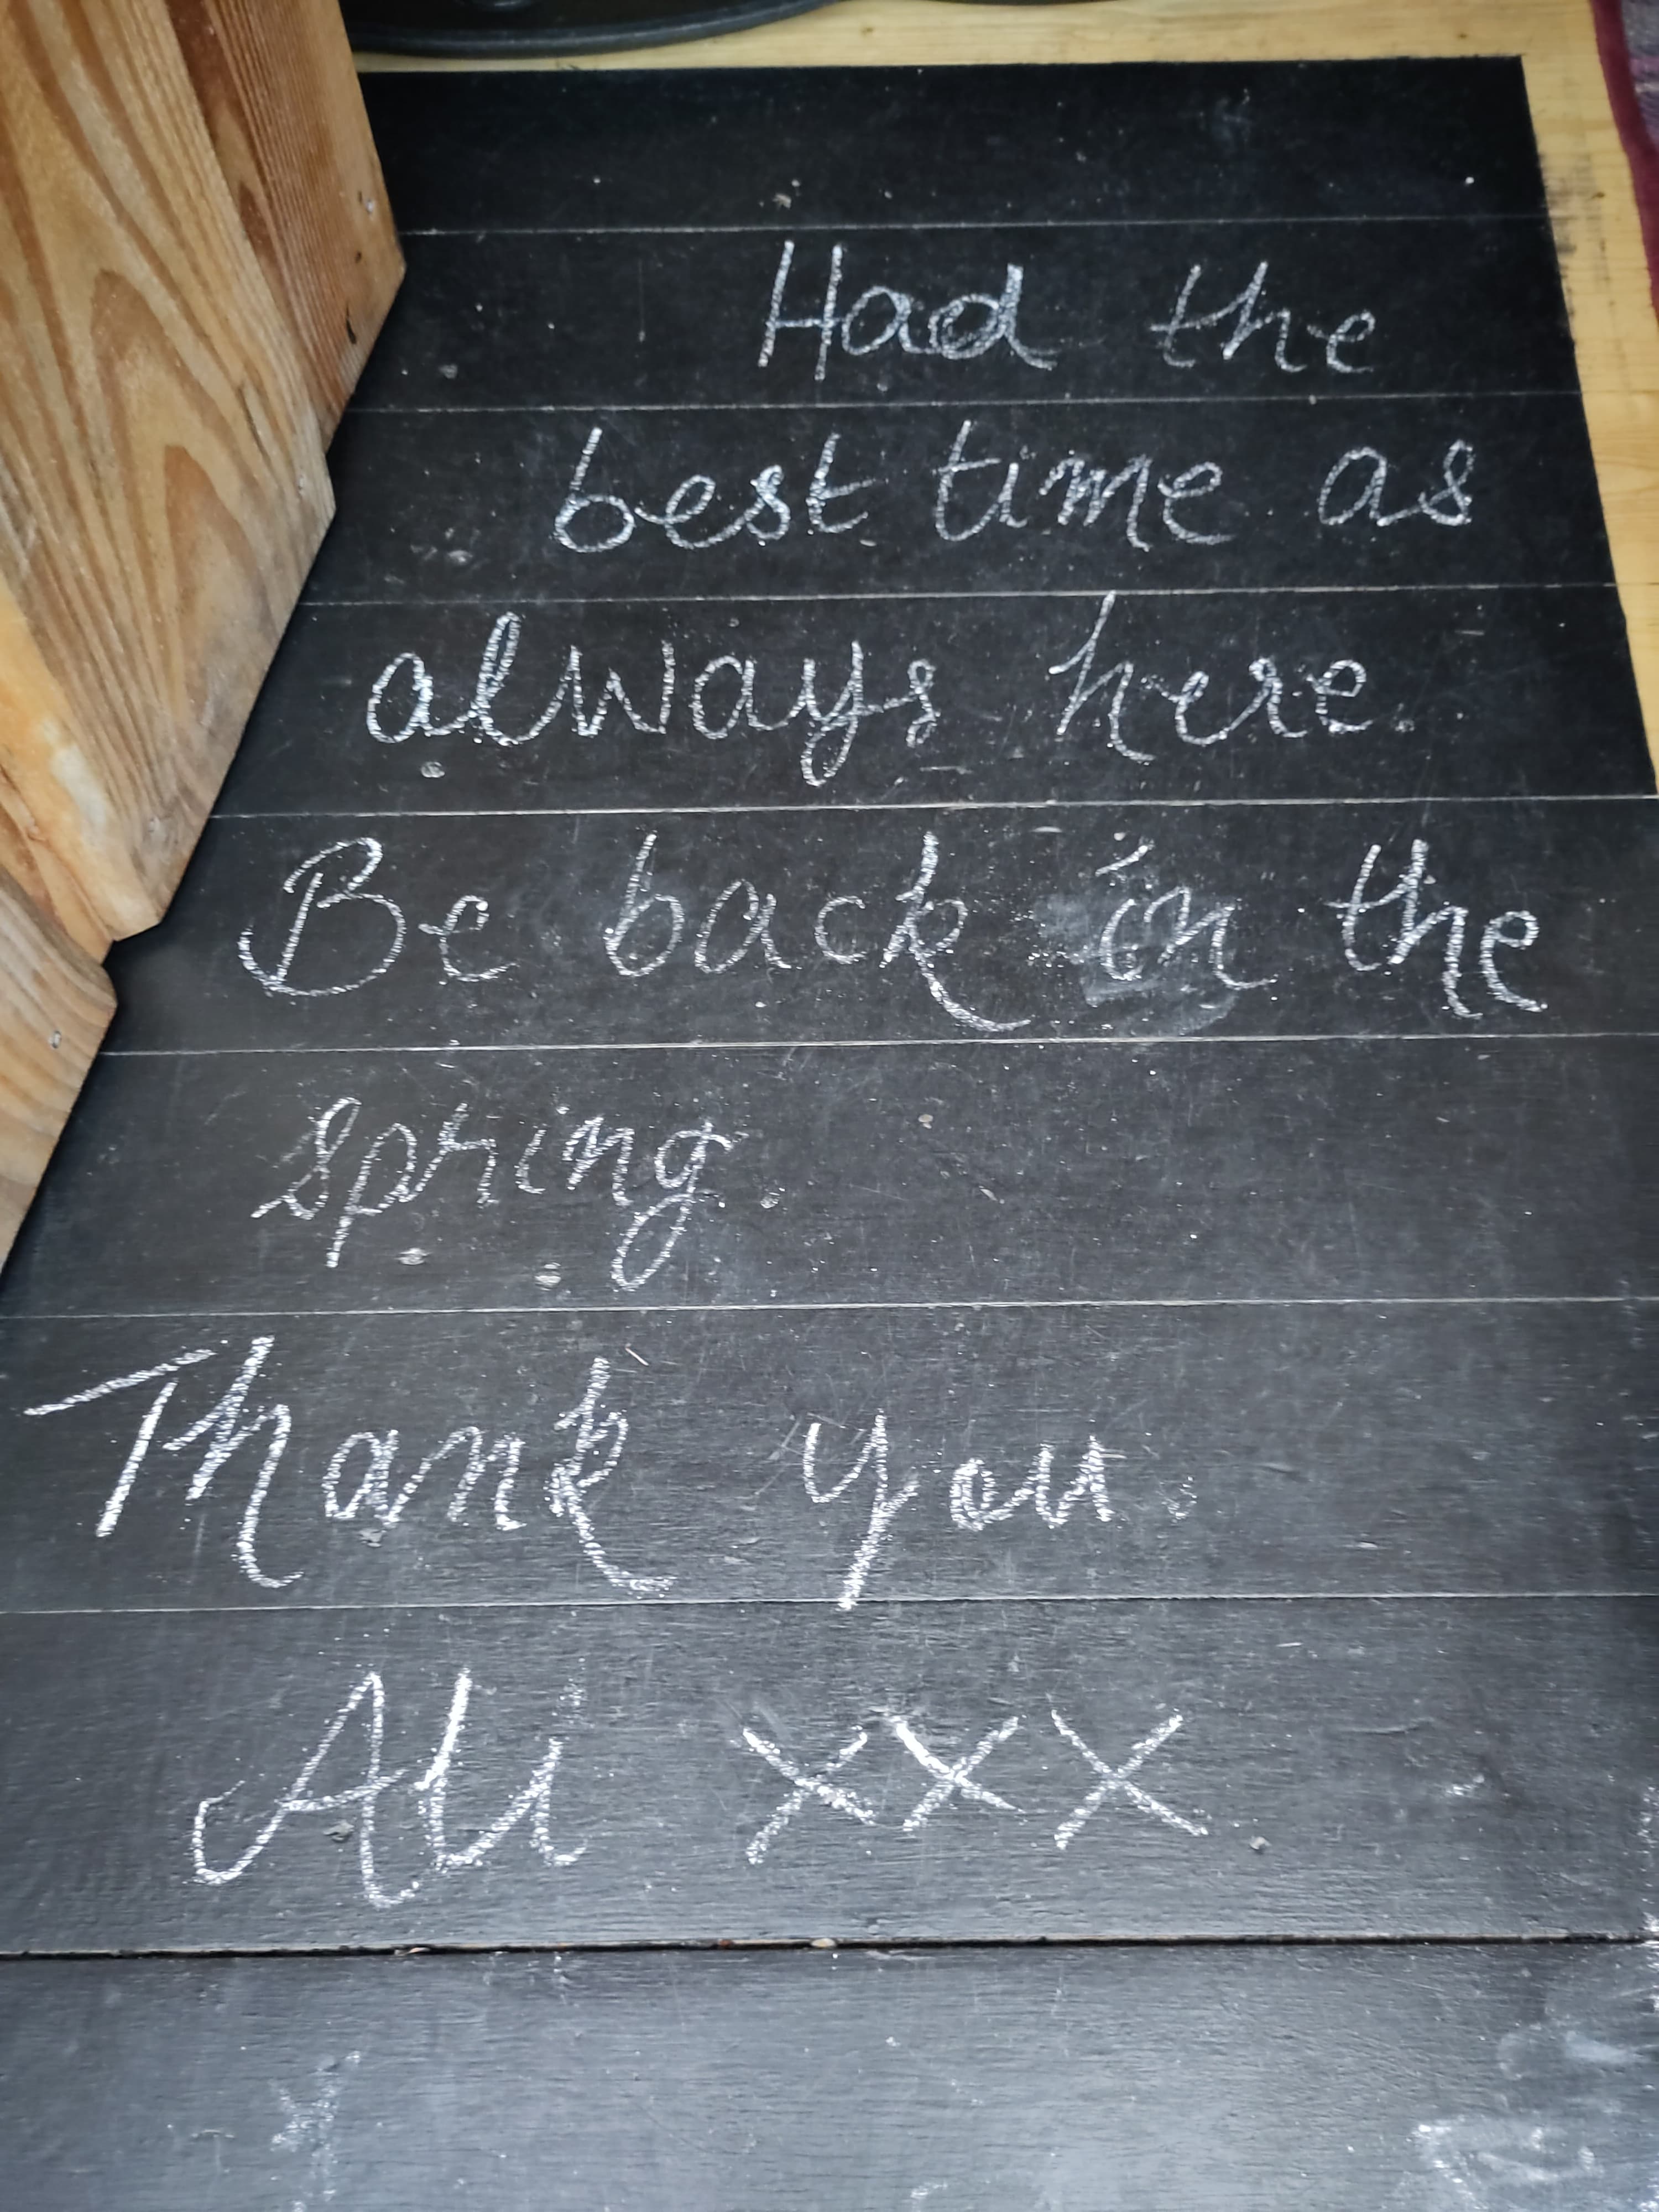 Had the
best time as
always here.
Be back in the
spring.
Thank you.
Ali xxx